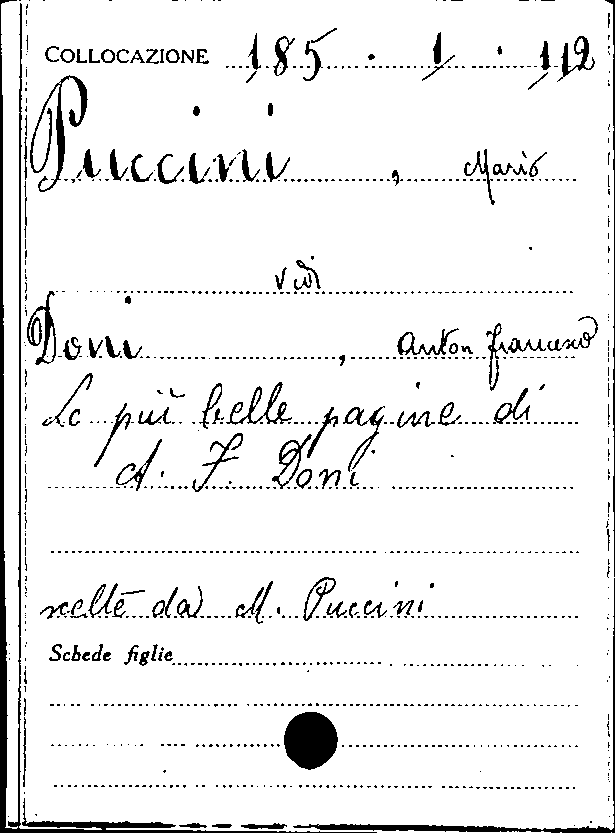 COLLOCAZIONE 185 . 1 . 112
Puccini , Mario
vedi
Doni , Anton Francesco
Le più belle pagine di
A. F. Doni
scelte da M. Puccini
Schede figlie